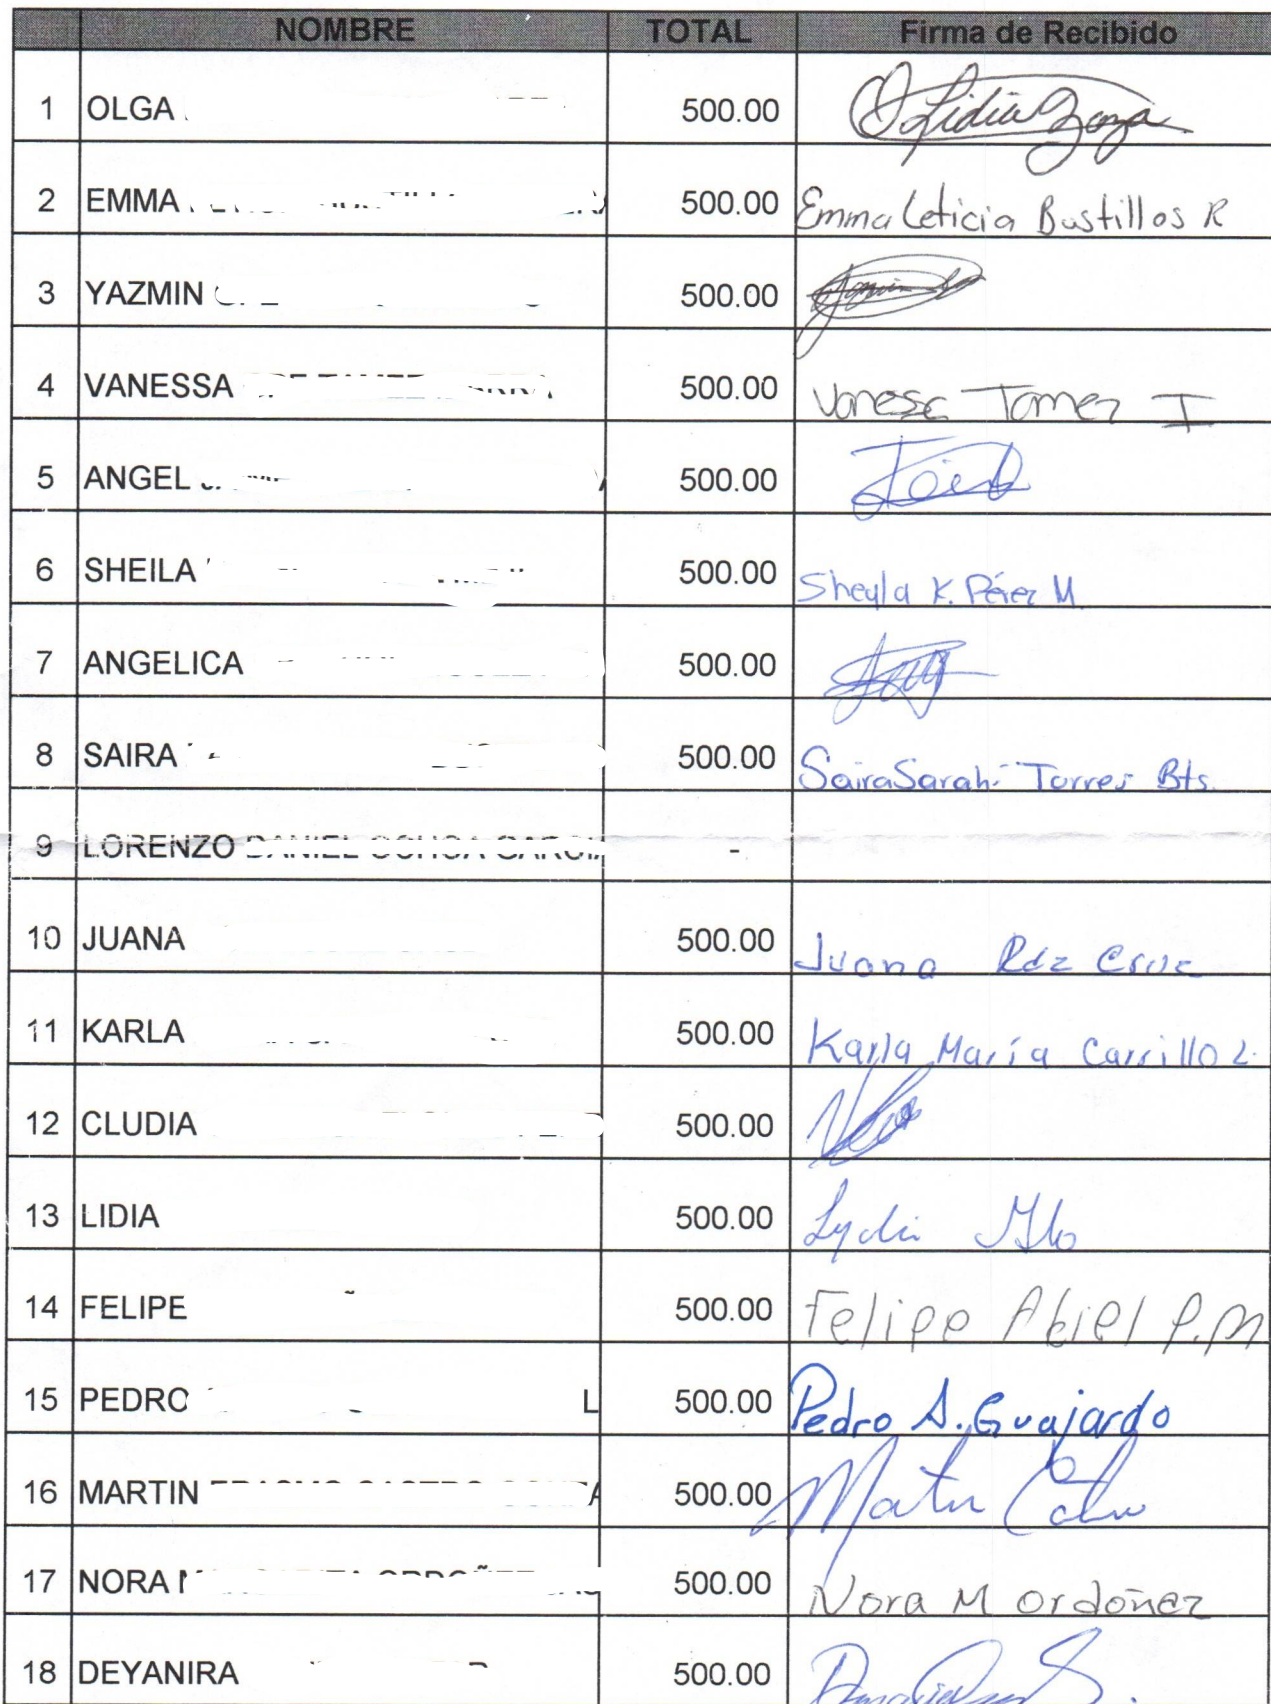 NOMBRE TOTAL Firma de Recibido
1 OLGA 500.00 Lidia
2 EMMA 500.00 Emma Leticia Bustillos R
3 YAZMIN 500.00
4 VANESSA 500.00 Tamez
5 ANGEL 500.00
6 SHEILA 500.00 Sheyla K. Pérez M.
7 ANGELICA 500.00
8 SAIRA 500.00 Saira Sarahi Torres Bts.
9 LORENZO DANIEL OCHOA GARCIA -
10 JUANA 500.00 Juana Rdz Cruz
11 KARLA 500.00 Karla María Carrillo L.
12 CLUDIA 500.00
13 LIDIA 500.00
14 FELIPE 500.00 Felipe Abiel P.M
15 PEDRO L 500.00 Pedro A. Guajardo
16 MARTIN 500.00 Martin
17 NORA 500.00 Nora M Ordoñez
18 DEYANIRA 500.00